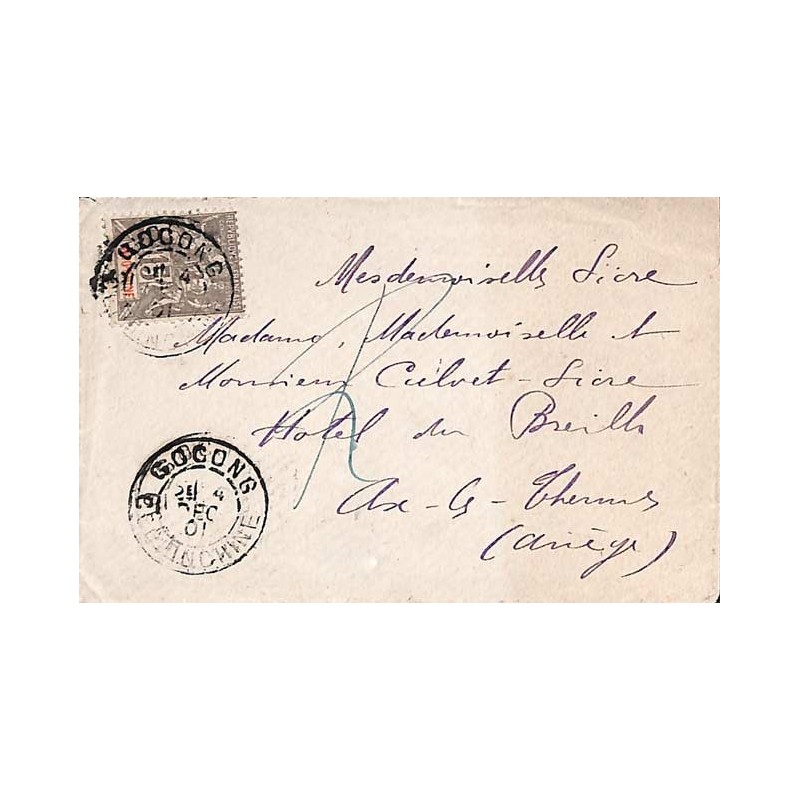 GOCONG
4
Mesdemoiselles Sicre
Madame, Mademoiselle et
Monsieur Calvet-Sicre
Hotel du Breilh
Ax-les-Thermes
(Ariège)
GOCONG
4
DEC
01
COCHINCHINE